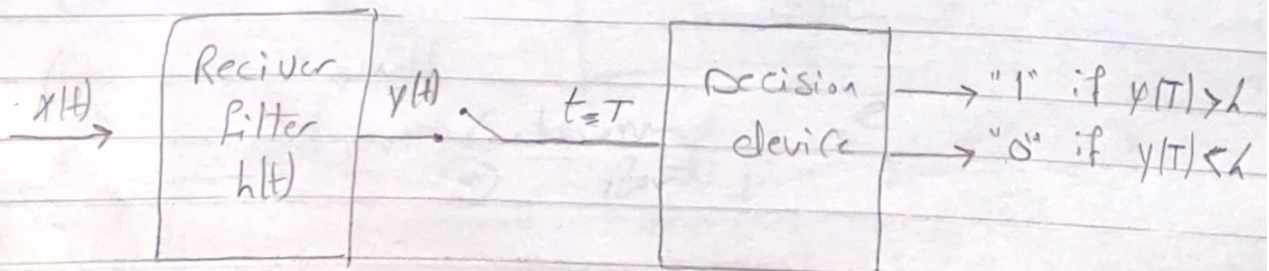 x(t)
Reciver
filter
h(t)
y(t)
t=T
Decision
device
"1" if y(T)>λ
"0" if y(T)<λ